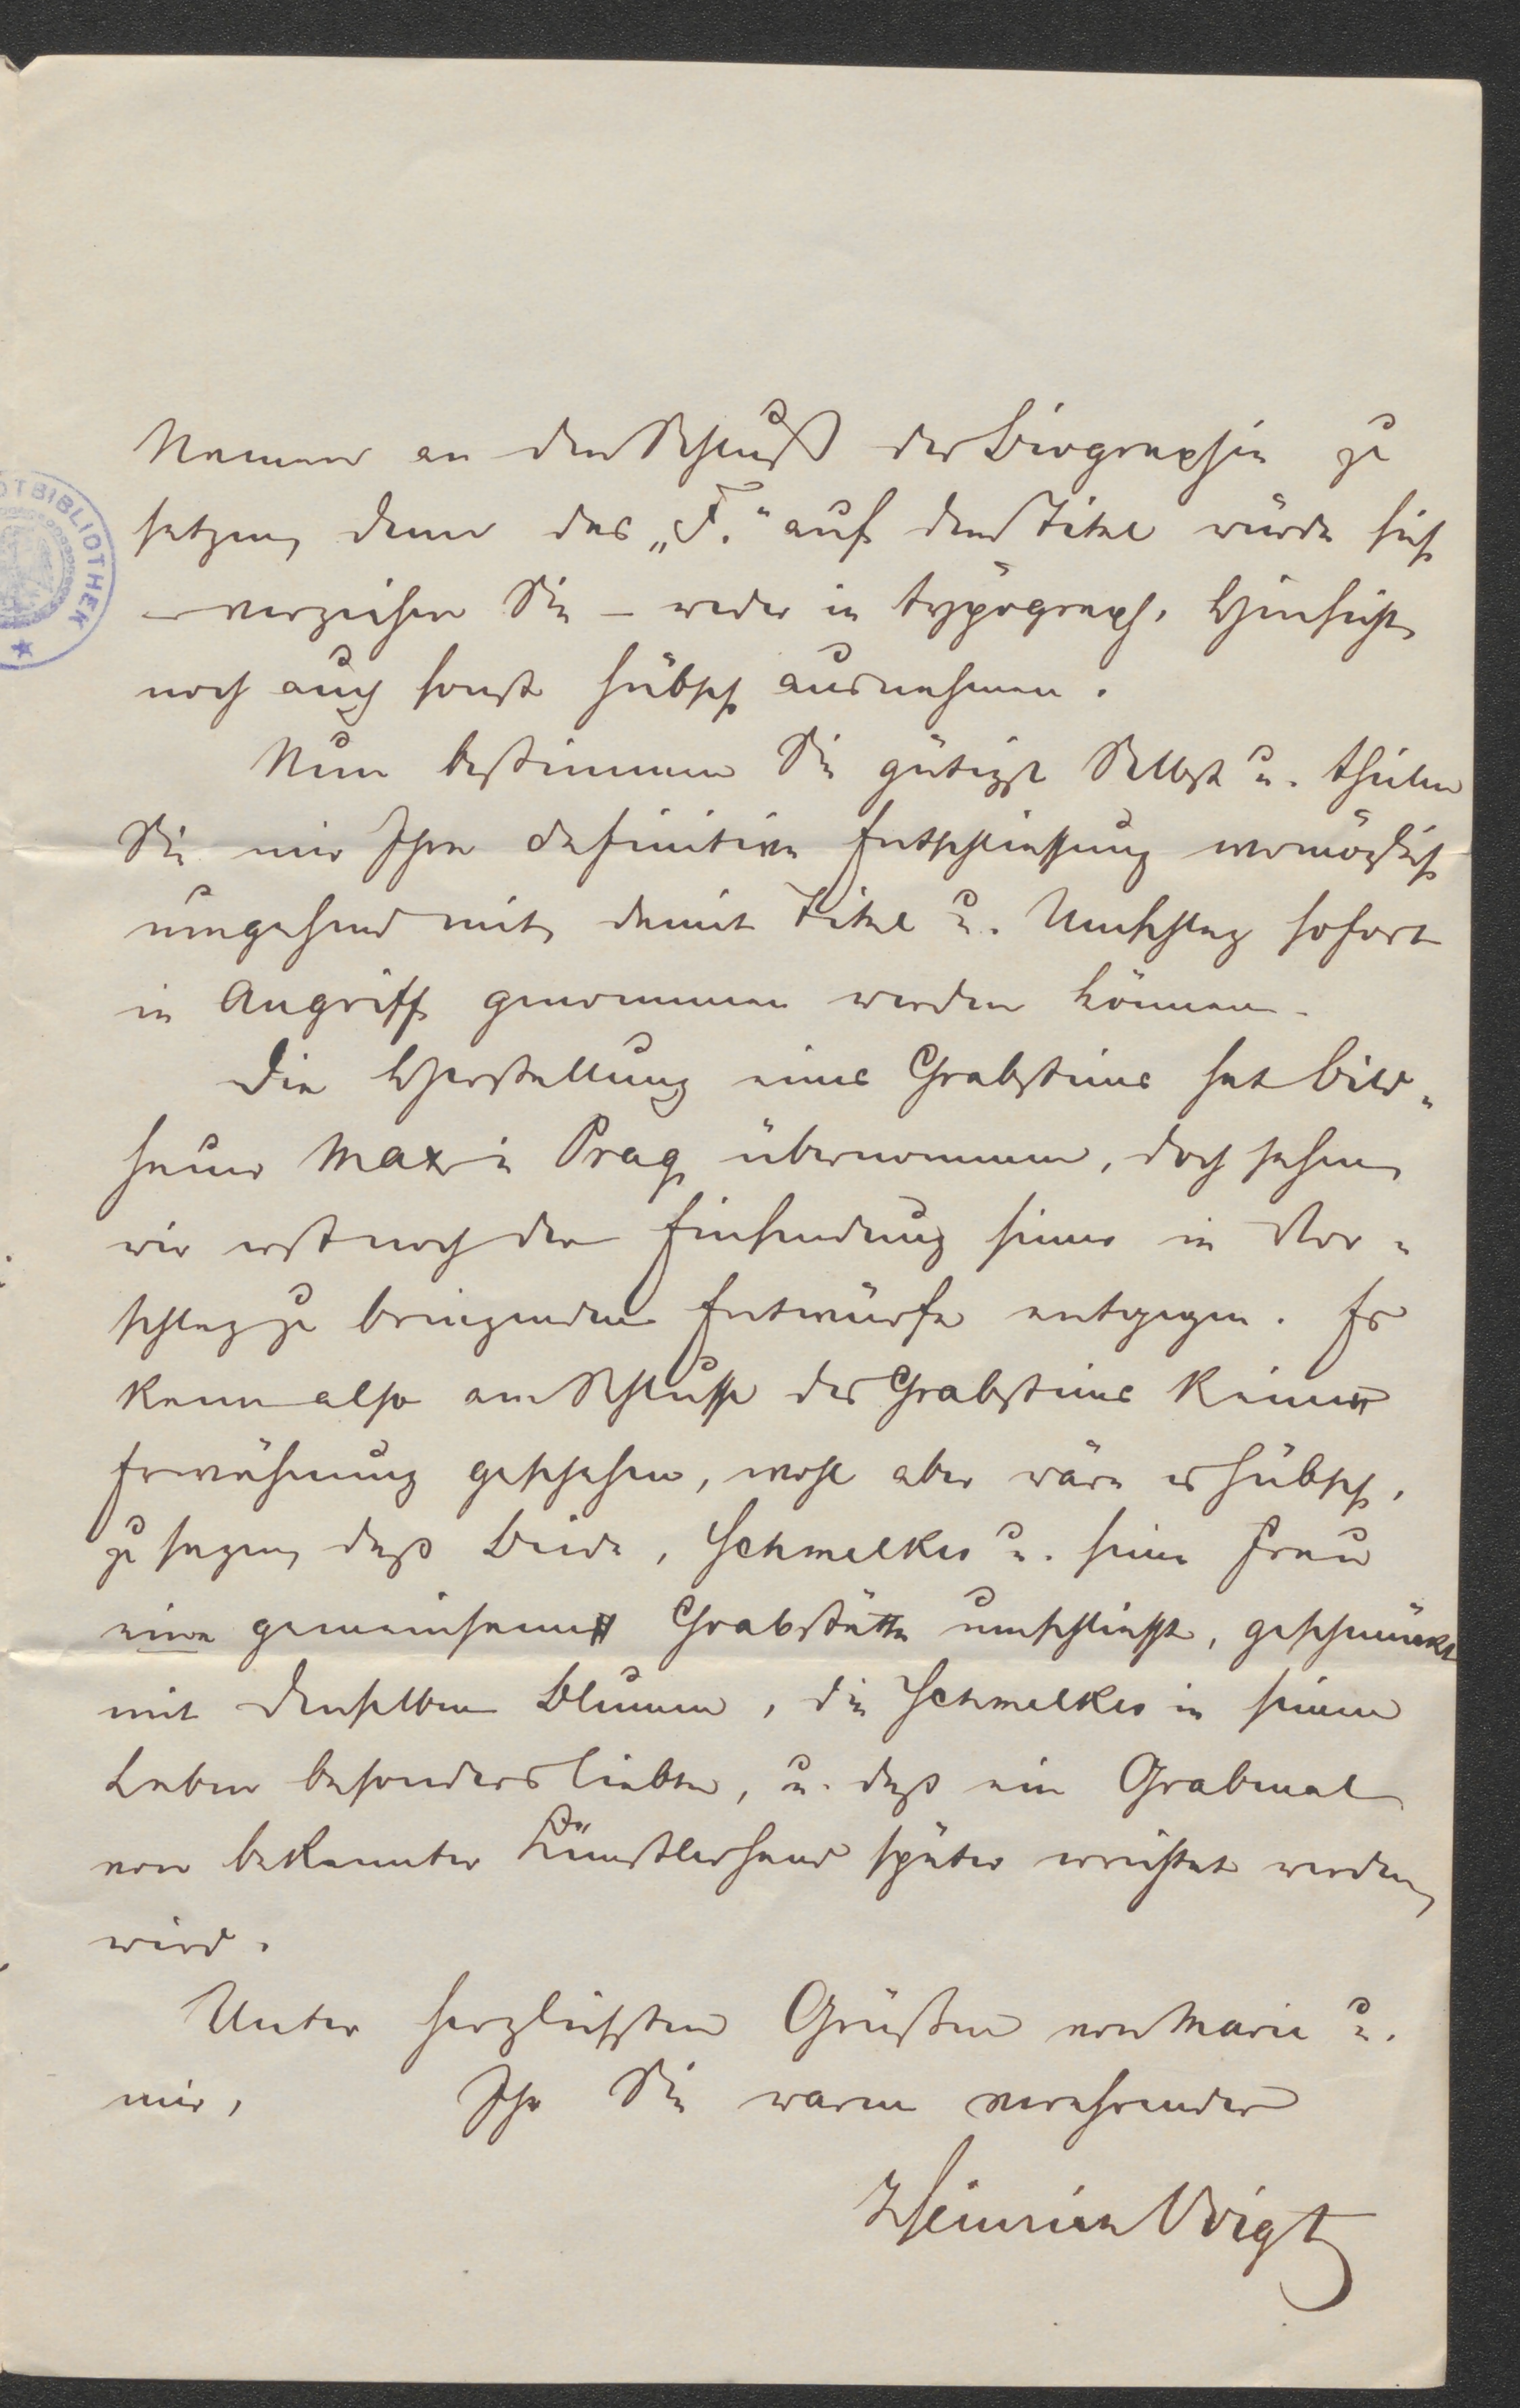 Namen an den Schluß der Biographie zu
setzen, denn das „F.“ auf dem Titel würde sich
– verzeihen Sie – weder in typograph. Hinsicht
noch auch sonst hübsch ausnehmen.
Nun bestimmen Sie gütigst Selbst u. theilen
Sie mir Ihre definitive Entschliessung womöglich
umgehend mit, damit Titel u. Umschlag sofort
in Angriff genommen werden können.
Die Herstellung eines Grabsteins hat Bild-
hauer Max i Prag übernommen, doch sehen
wir erst noch der Einsendung seiner in Vor-
schlag zu bringenden Entwürfe entgegen. Es
kann also am Schlusse des Grabsteins keine
Erwähnung geschehen, wohl aber wäre es hübsch,
zu sagen, daß Beide, Schmelkes u. seine Frau
eine gemeinsame Grabstätte umschliesst, geschmückt
mit denselben Blumen, die Schmelkes in seinem
Leben besonders liebte, u. daß ein Grabmal
von bekannter Künstlerhand später errichtet werden
wird.
Unter herzlichsten Grüßen von Marie u.
mir, Ihr Sie warm verehrender
Heinrich Voigt
OTBIBLIOTHEK